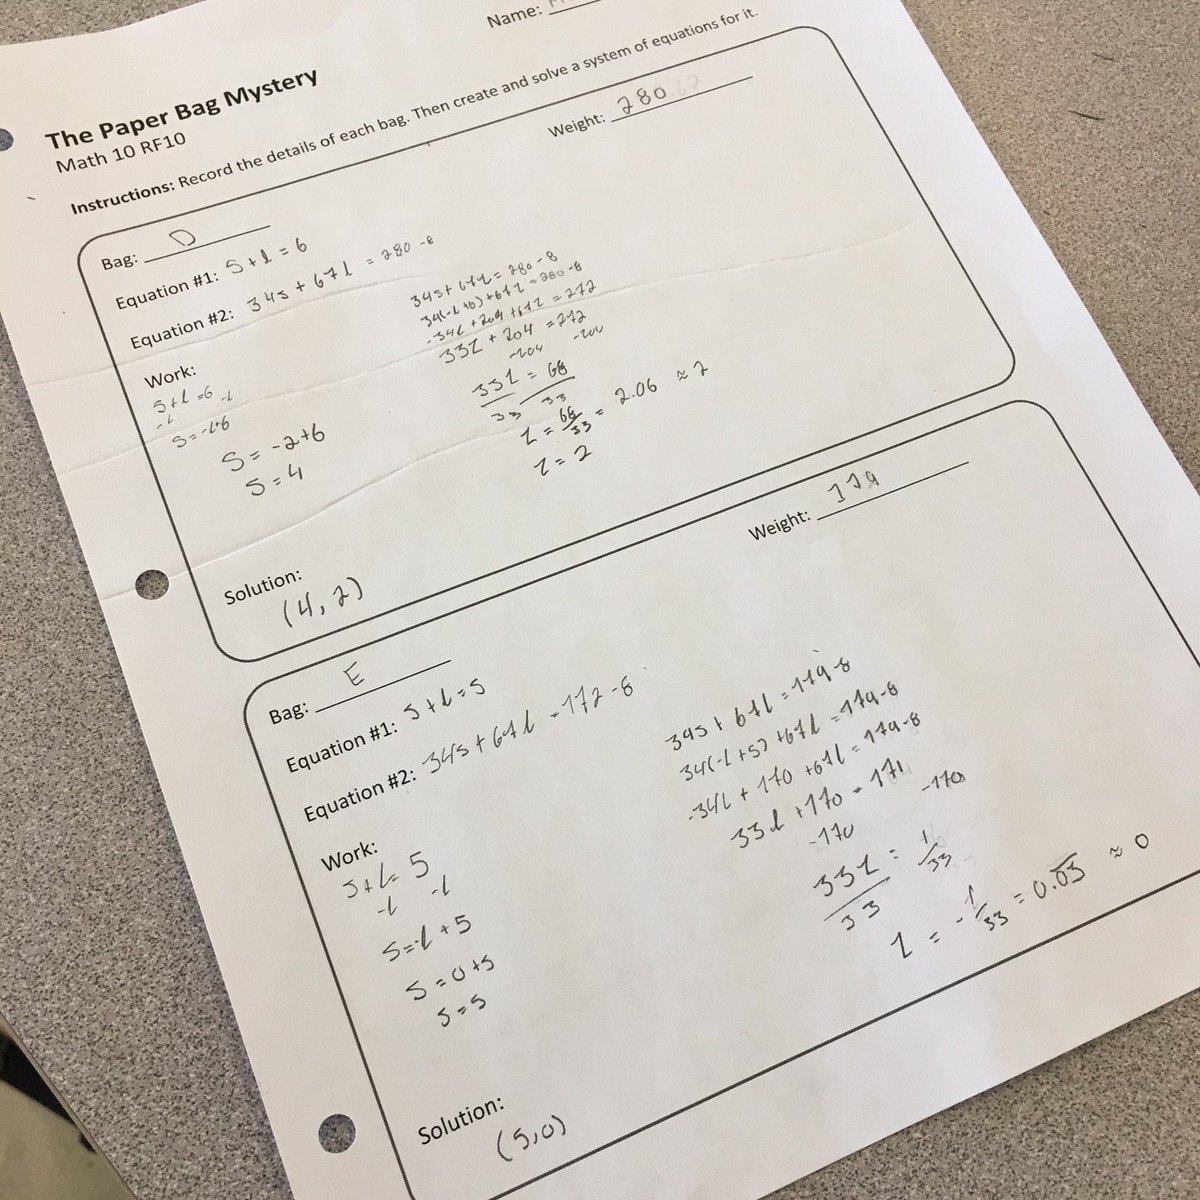 Name:
The Paper Bag Mystery
Math 10 RF10
Instructions: Record the details of each bag. Then create and solve a system of equations for it.
Bag: D
Weight: 280
Equation #1: s+l=6
Equation #2: 34s+67l = 280-8
Work:
s+l=6 -l
-l
s=-l+6
s= -2+6
s=4
34s+67l=280-8
34(-l+6)+67l=280-8
-34l+204+67l=272
33l+204=272
-204 -204
33l = 68
33 33
l = 68/33 = 2.06 ≈ 2
l = 2
Solution:
(4,2)
Bag: E
Weight: 179
Equation #1: s+l=5
Equation #2: 34s+67l=172-8
Work:
s+l= 5
-l -l
s=-l+5
s=0+5
s=5
34s+67l=179-8
34(-l+5)+67l=179-8
-34l+170+67l=179-8
33l+170=171
-170 -170
33l = 1/33
33
l = -1/33 = 0.03 ≈ 0
Solution:
(5,0)